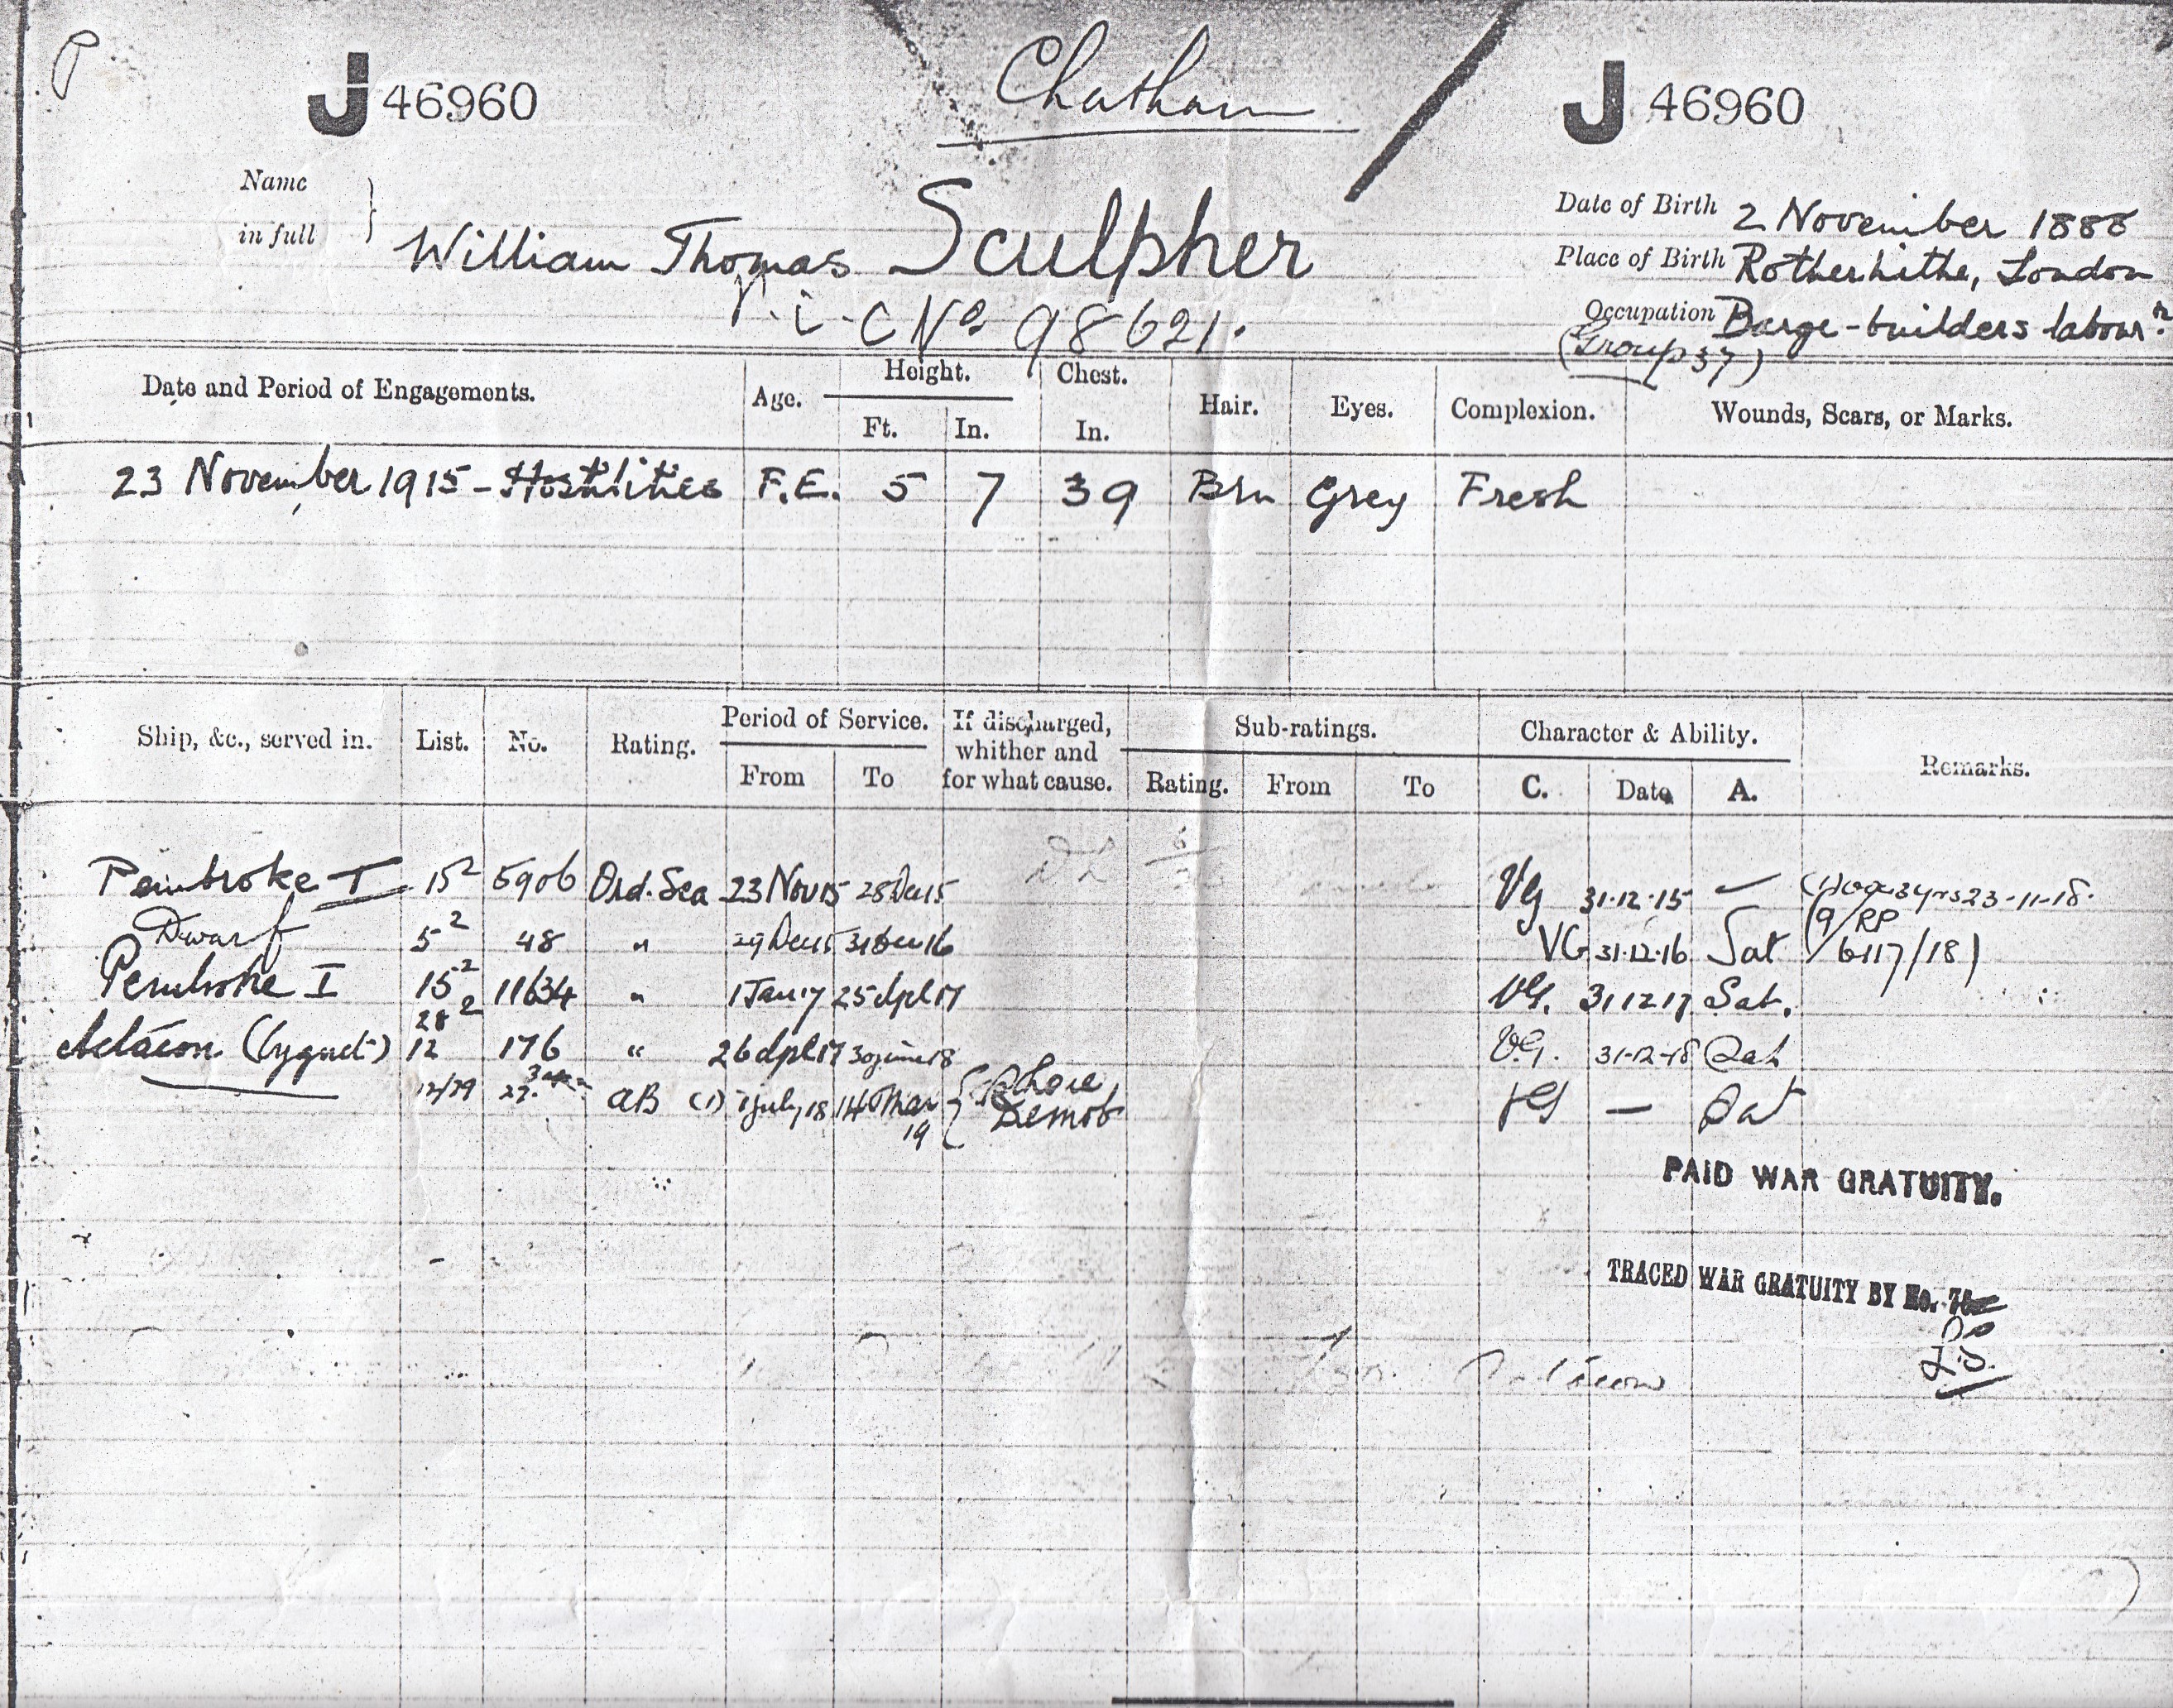 J 46960 Chatham J 46960
Name in full William Thomas Sculpher
Date of Birth 2 November 1888
Place of Birth Rotherhithe, London
Occupation Barge-builders labourr
(Group 37)
C No 98621.
Date and Period of Engagements. Age. Height. Ft. In. Chest. In. Hair. Eyes. Complexion. Wounds, Scars, or Marks.
23 November 1915 - Hostilities F.E. 5 7 39 Brn Grey Fresh
Ship, &c., served in. List. No. Rating. Period of Service. From To If discharged, whither and for what cause. Sub-ratings. Rating. From To Character & Ability. C. Date A. Remarks.
Pembroke I 15² 5906 Ord. Sea 23 Nov 15 28 Dec 15 VG 31.12.15 23-11-18.
Dwarf 5² 48 " 29 Dec 15 31 Dec 16 VG 31.12.16 Sat 6117/18)
Pembroke I 15² 11634 " 1 Jan 17 25 Apl 17 VG. 31 12 17 Sat.
28²
Actaeon (Cygnet) 12 176 " 26 Apl 17 30 June 18 VG. 31-12-18 Sat
12/79 AB (1) 1 July 18 14 Mar 19 Shore Demob VG — Sat
PAID WAR GRATUITY.
TRACED WAR GRATUITY BY No.
Actaeon